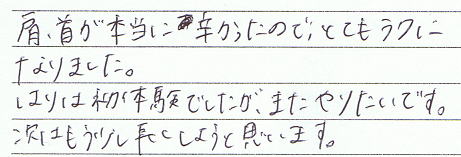 肩、首が本当に辛かったので、とてもラクに
なりました。
はりは初体験でしたが、またやりたいです。
次はもう少し長くしようと思います。